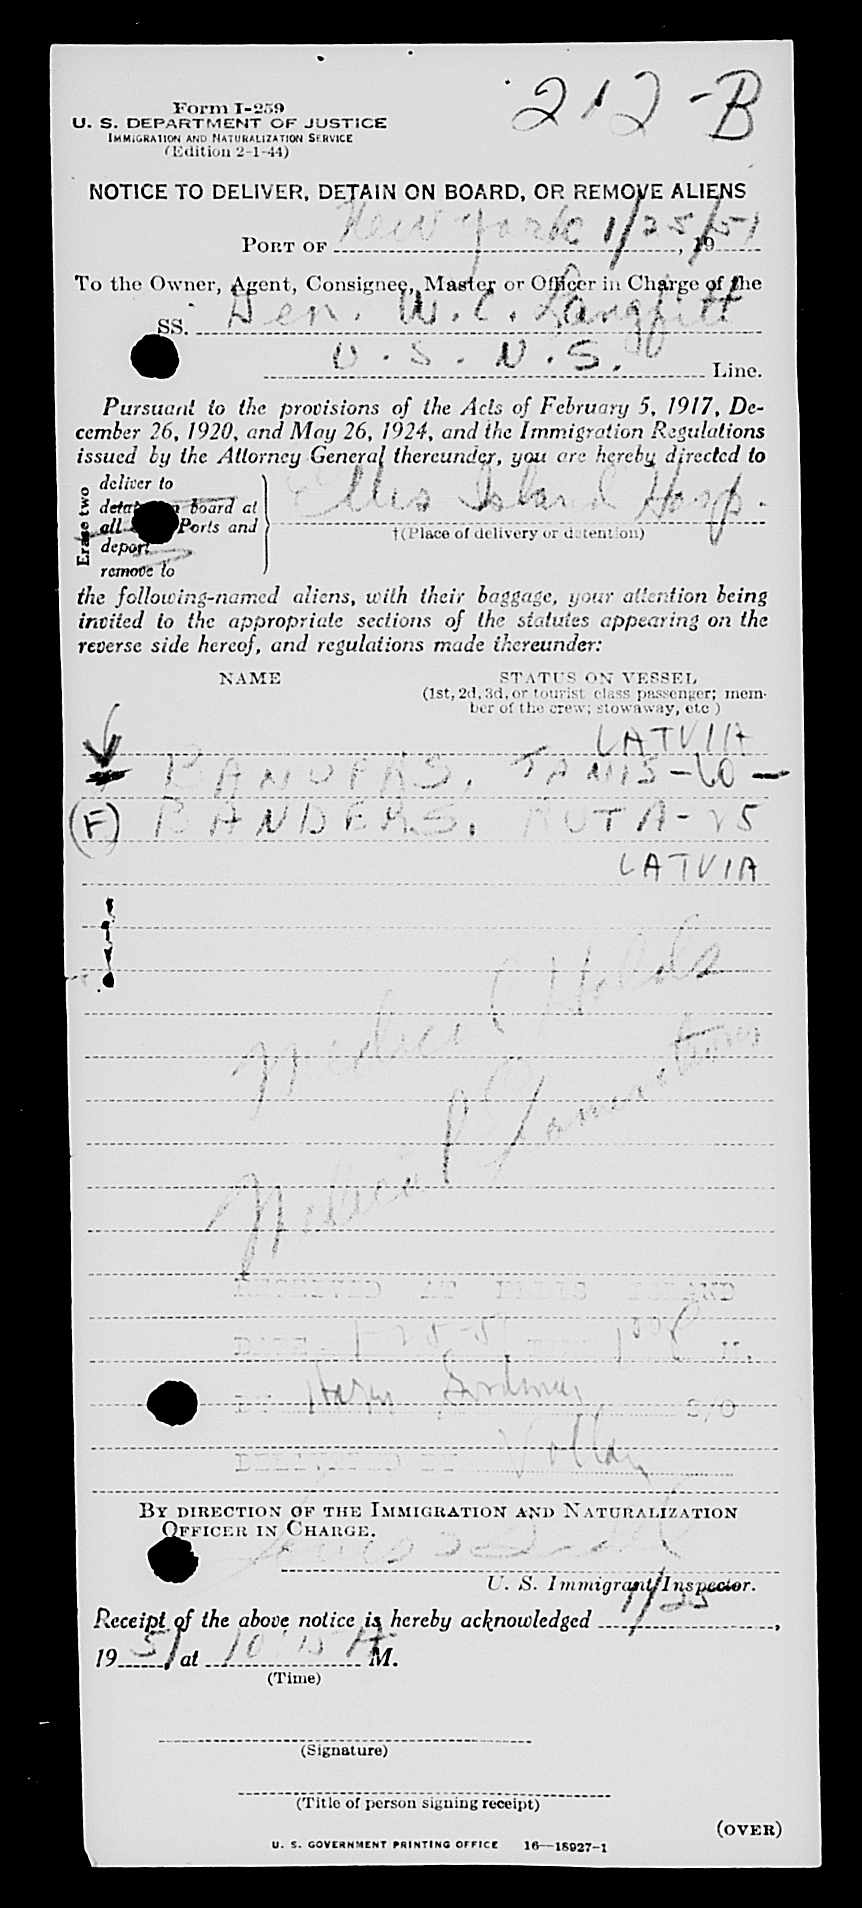 212-B
Form I-259
U. S. DEPARTMENT OF JUSTICE
IMMIGRATION AND NATURALIZATION SERVICE
(Edition 2-1-44)
NOTICE TO DELIVER, DETAIN ON BOARD, OR REMOVE ALIENS
PORT OF New York 1/25/51, 19
To the Owner, Agent, Consignee, Master or Officer in Charge of the
SS. Gen. W. C. Langfitt
U. S. N. S. Line.
Pursuant to the provisions of the Acts of February 5, 1917, De-
cember 26, 1920, and May 26, 1924, and the Immigration Regulations
issued by the Attorney General thereunder, you are hereby directed to
Erase two
deliver to
detain on board at
all Ports and
deport
remove to
Ellis Island Hosp.
†(Place of delivery or detention)
the following-named aliens, with their baggage, your attention being
invited to the appropriate sections of the statutes appearing on the
reverse side hereof, and regulations made thereunder:
NAME STATUS ON VESSEL
(1st, 2d, 3d, or tourist class passenger; mem-
ber of the crew; stowaway, etc.)
LATVIA
60
(F) BANDERS, RUTA-25
LATVIA
Medical Holds
Medical Examinations
RECEIVED AT ELLIS ISLAND
DATE 1-25-51 TIME 1 00 P M.
BY S/O
DELIVERED BY
BY DIRECTION OF THE IMMIGRATION AND NATURALIZATION
OFFICER IN CHARGE.
U. S. Immigrant Inspector.
Receipt of the above notice is hereby acknowledged 1/25,
1951 at 10 15 A M.
(Time)
(Signature)
(Title of person signing receipt)
(OVER)
U. S. GOVERNMENT PRINTING OFFICE 16—18927-1